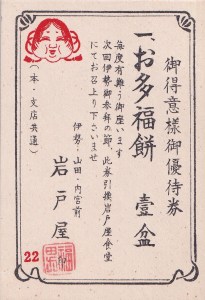 御得意様御優待券
一、お多福餅 壹盆
毎度有難う御座います
次回伊勢御参拝の節、此券引換岩戸屋食堂
にてお召上り下さいませ
伊勢・山田・内宮前
岩戸屋
(本・支店共通)
22